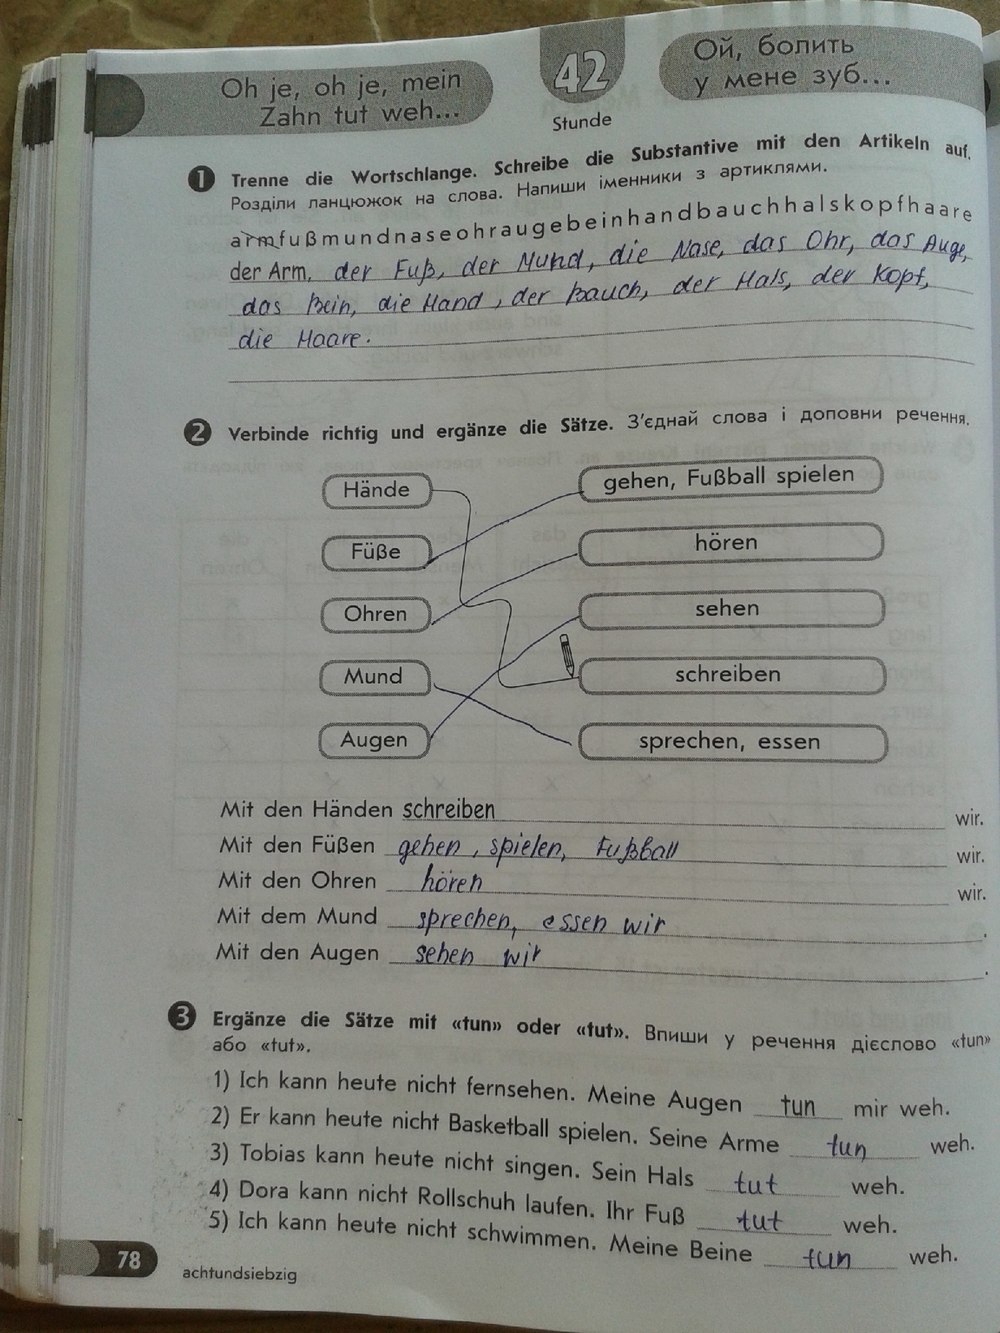 Oh je, oh je, mein
Zahn tut weh...
42
Stunde
Ой, болить
у мене зуб...
1 Trenne die Wortschlange. Schreibe die Substantive mit den Artikeln auf.
Розділи ланцюжок на слова. Напиши іменники з артиклями.
armfußmundnaseohraugebeinhandbauchhalskopfhaare
der Arm, der Fuß, der Mund, die Nase, das Ohr, das Auge,
das Bein, die Hand, der Bauch, der Hals, der Kopf,
die Haare.
2 Verbinde richtig und ergänze die Sätze. З’єднай слова і доповни речення.
Hände
gehen, Fußball spielen
Füße
hören
Ohren
sehen
Mund
schreiben
Augen
sprechen, essen
Mit den Händen schreiben wir.
Mit den Füßen gehen, spielen, Fußball wir.
Mit den Ohren hören wir.
Mit dem Mund sprechen, essen wir.
Mit den Augen sehen wir.
3 Ergänze die Sätze mit «tun» oder «tut». Впиши у речення дієслово «tun»
або «tut».
1) Ich kann heute nicht fernsehen. Meine Augen tun mir weh.
2) Er kann heute nicht Basketball spielen. Seine Arme tun weh.
3) Tobias kann heute nicht singen. Sein Hals tut weh.
4) Dora kann nicht Rollschuh laufen. Ihr Fuß tut weh.
5) Ich kann heute nicht schwimmen. Meine Beine tun weh.
78
achtundsiebzig